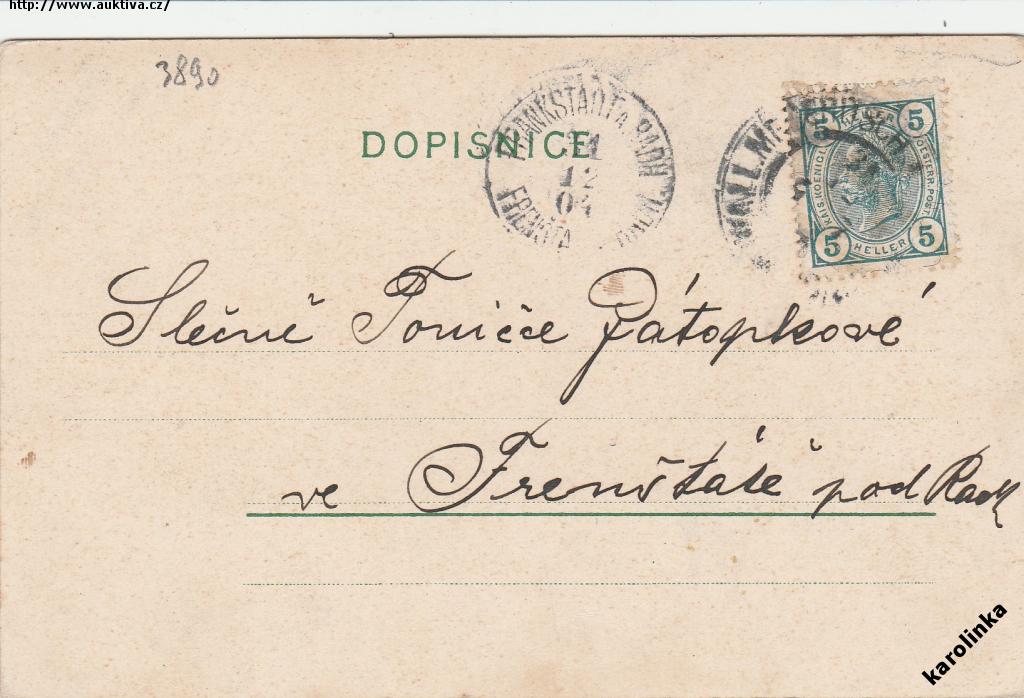 http://www.auktiva.cz/
3890
DOPISNICE
FRANKSTADT A. RADH
12
04
WALL. MESERITSCH
5 HELLER 5
KAIS. KOENIGL. OESTERR. POST
5 HELLER 5
Slečně Toničce Zátopkové
ve Frenštátě pod Radh
karolinka